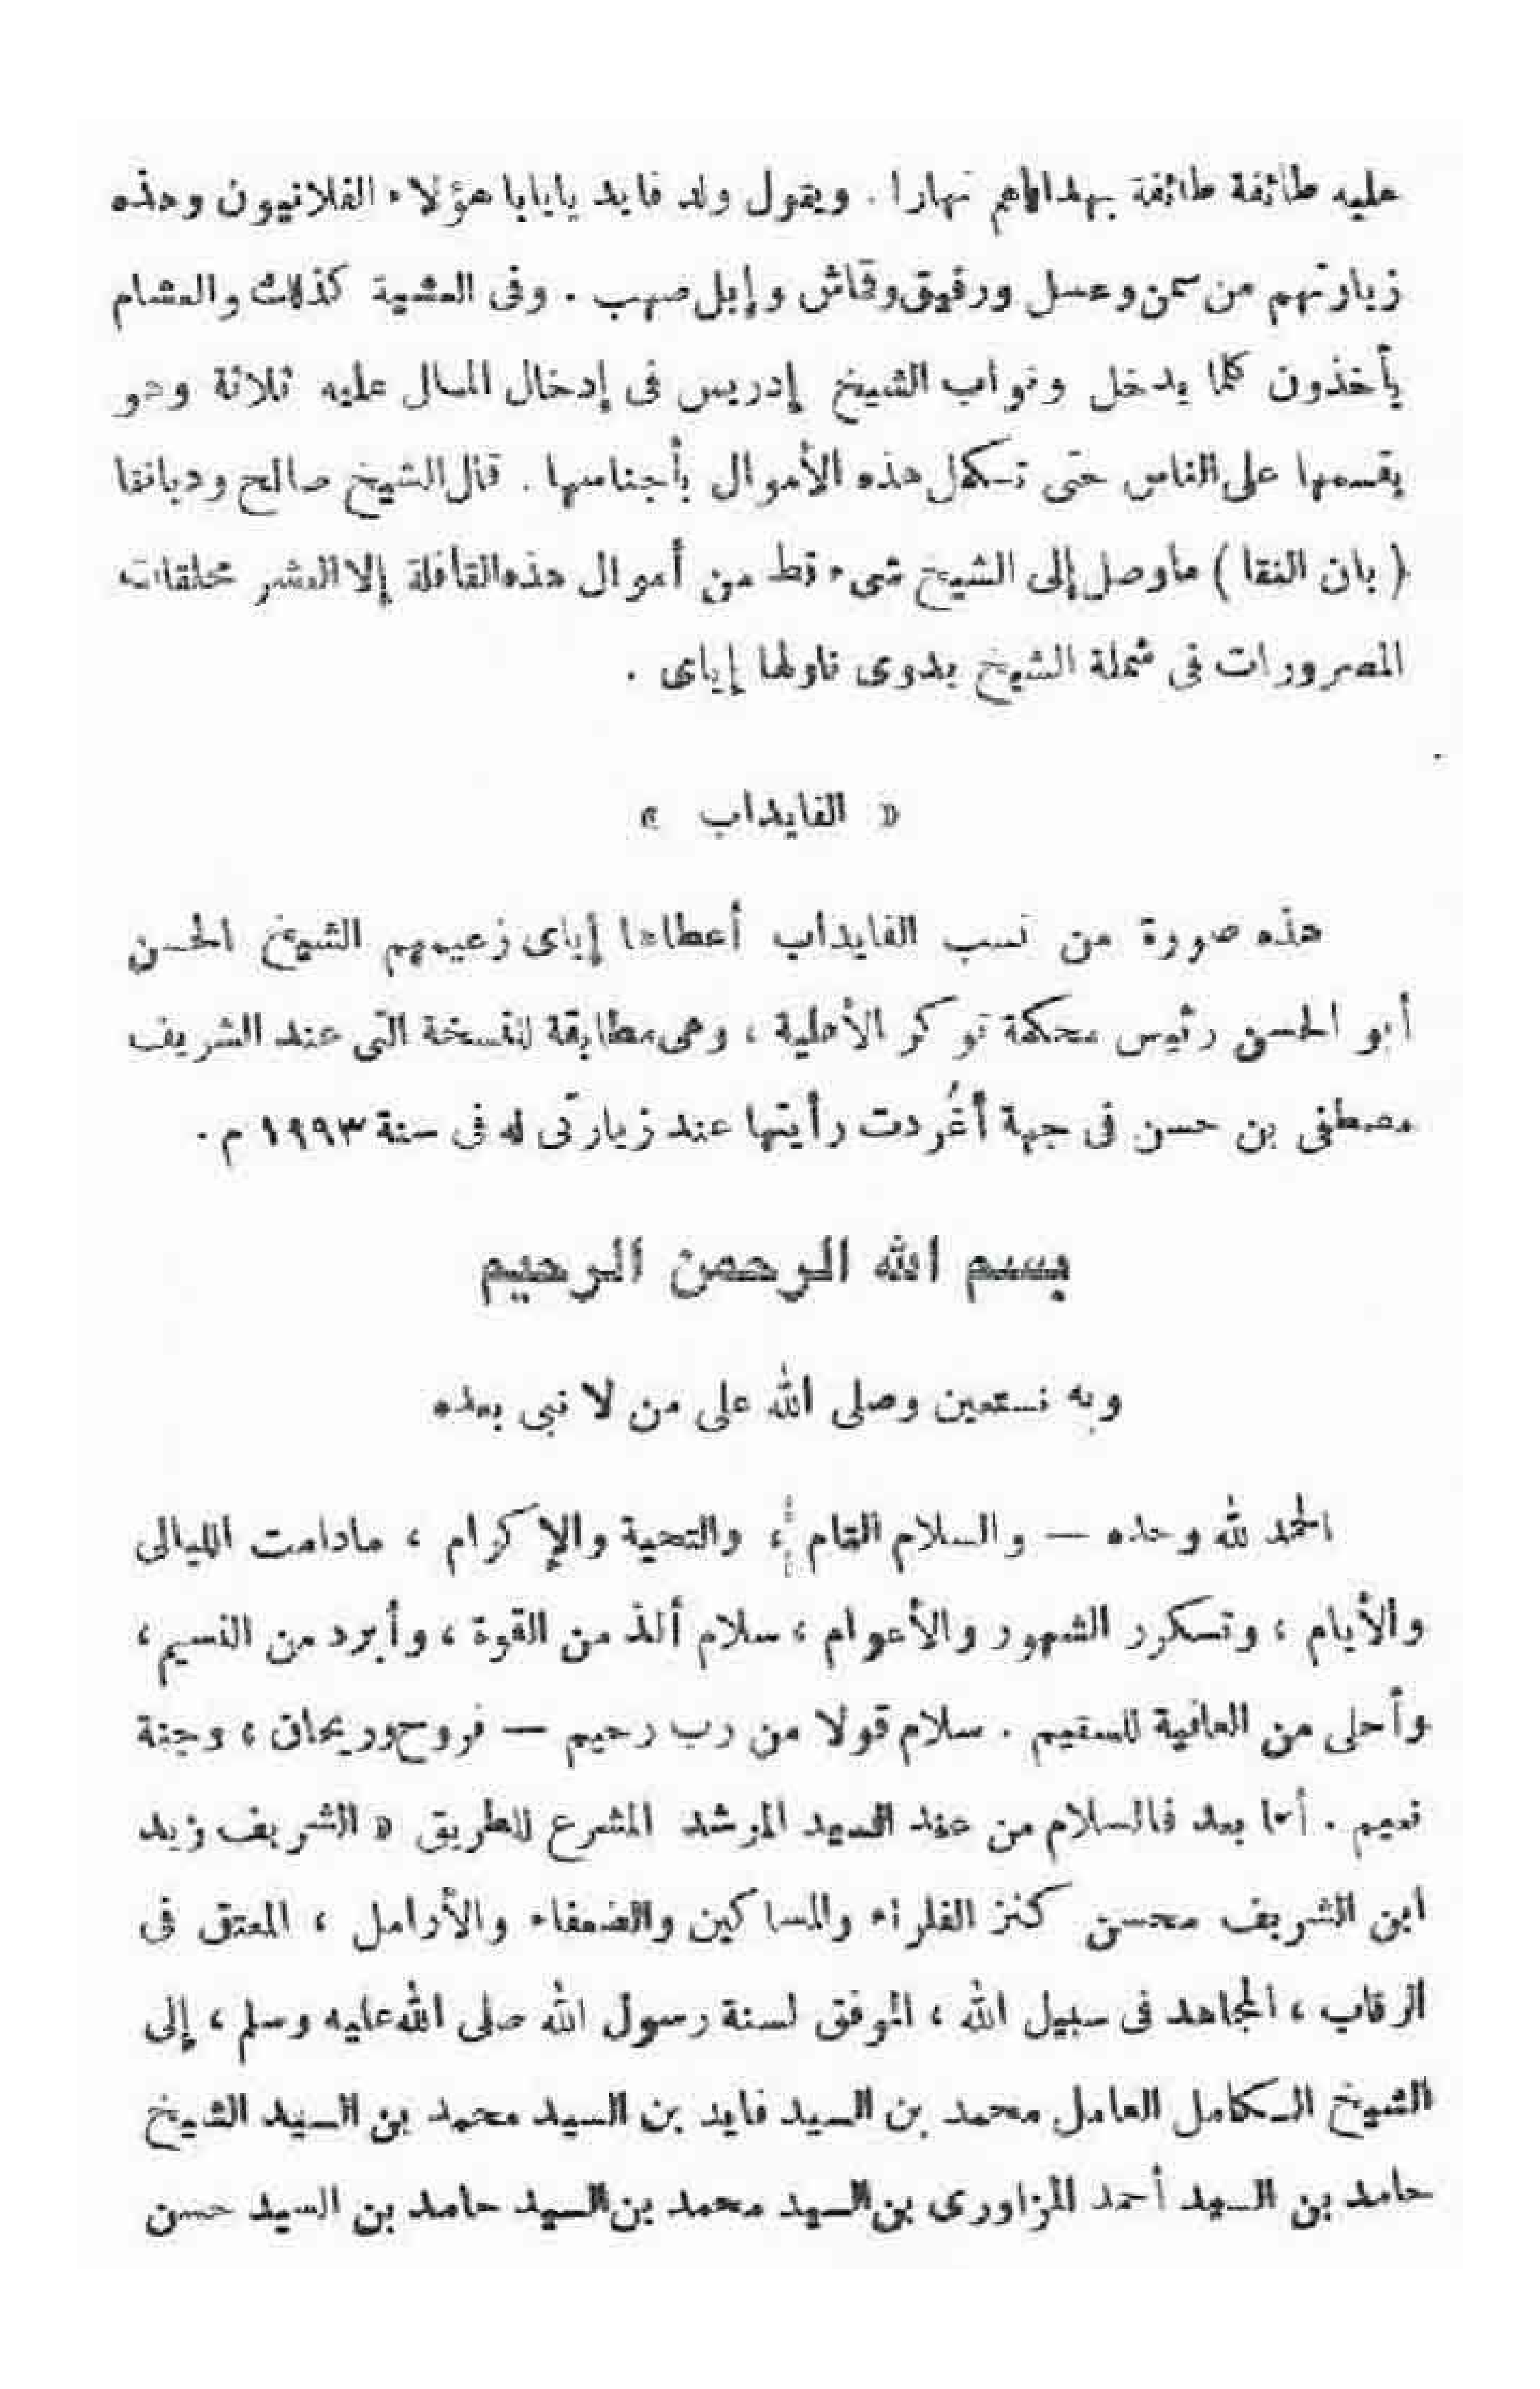 عليه طائفة طائفة بهداياهم نهارا . ويقول ولد فايد يابابا هؤلاء الفلانيون وهذه
زيارتهم من سمن وعسل ورقيق وقماش وإبل صهب . وفى العشية كذلك والعشام
يأخذون كلما يدخل ونواب الشيخ إدريس فى إدخال المال عليه ثلاثة وهو
يقسمها على الناس حتى تكمل هذه الأموال بأجناسها . قال الشيخ صالح ودبانقا
( بان النقا ) ماوصل إلى الشيخ شىء قط من أموال هذه القافلة إلا العشر محلقات
المصرورات فى شملة الشيخ بدوى ناولها إياى .
« الفايداب »
هذه صورة من نسب الفايداب أعطاها إياى زعيمهم الشيخ الحسن
أبو الحسن رئيس محكمة توكر الأهلية ، وهى مطابقة للنسخة التى عند الشريف
مصطفى بن حسن فى جهة أغُردت رأيتها عند زيارتى له فى سنة ١٩٩٣ م .
بسم الله الرحمن الرحيم
وبه نستعين وصلى الله على من لا نبى بعده
الحمد لله وحده — والسلام التام ، والتحية والإكرام ، مادامت الليالى
والأيام ، وتكرر الشهور والأعوام ، سلام ألذ من القوة ، وأبرد من النسيم ،
وأحلى من العافية للسقيم . سلام قولا من رب رحيم — فروح وريحان ، وجنة
نعيم . أما بعد فالسلام من عند السيد المرشد المشرع للطريق « الشريف زيد
ابن الشريف محسن كنز الفقراء والمساكين والضعفاء والأرامل ، المعتق فى
الرقاب ، المجاهد فى سبيل الله ، الموفق لسنة رسول الله صلى الله عليه وسلم ، إلى
الشيخ الكامل العامل محمد بن السيد فايد بن السيد محمد بن السيد الشيخ
حامد بن السيد أحمد المزاورى بن السيد محمد بن السيد حامد بن السيد حسن